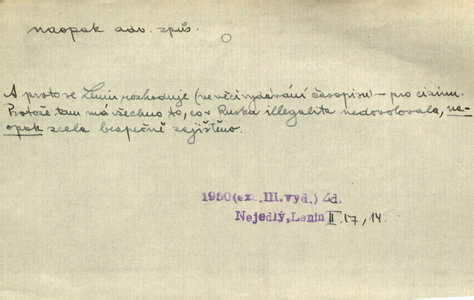 naopak adv. způs.
A proto se Lenin rozhoduje (ve věci vydávání časopisu) – pro cizinu.
Protože tam má všechno to, co v Rusku illegalita nedovolovala, na-
opak zcela bezpečně zajištěno.
1950(ex. III.vyd.) čd.
Nejedlý, Lenin II. 17, 14.